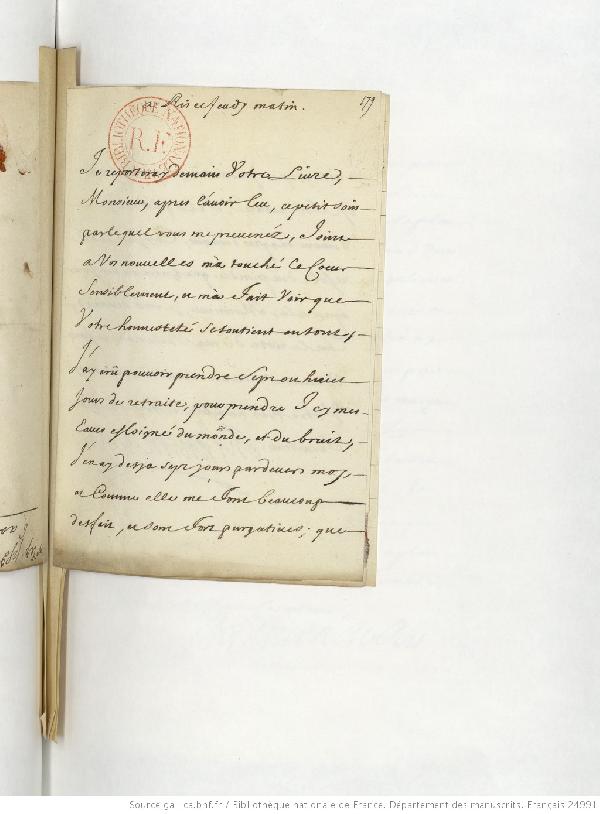 a Ris ce Jeudy matin.
179
BIBLIOTHEQUE NATIONALE
R.F.
Je reporteray demain Votre Livre,
Monsieur, apres l'avoir leu, ce petit soin
par lequel vous me prevenéz, Joint
a Vos nouvelles m'a touché le Coeur
Sensiblement, et m'a Fait Voir que
Votre honnesteté se soutient en tout,
J'ay crû pouvoir prendre Sept ou huict
Jours de retraite, pour prendre Icy mes
Eaues esloigné du monde, et du bruit,
J'en ay desja sept jours pardevers moy,
et Comme elle me Font beaucoup
d'effect, et sont Fort purgatives, que
Source gallica.bnf.fr / Bibliothèque nationale de France. Département des manuscrits. Français 24991